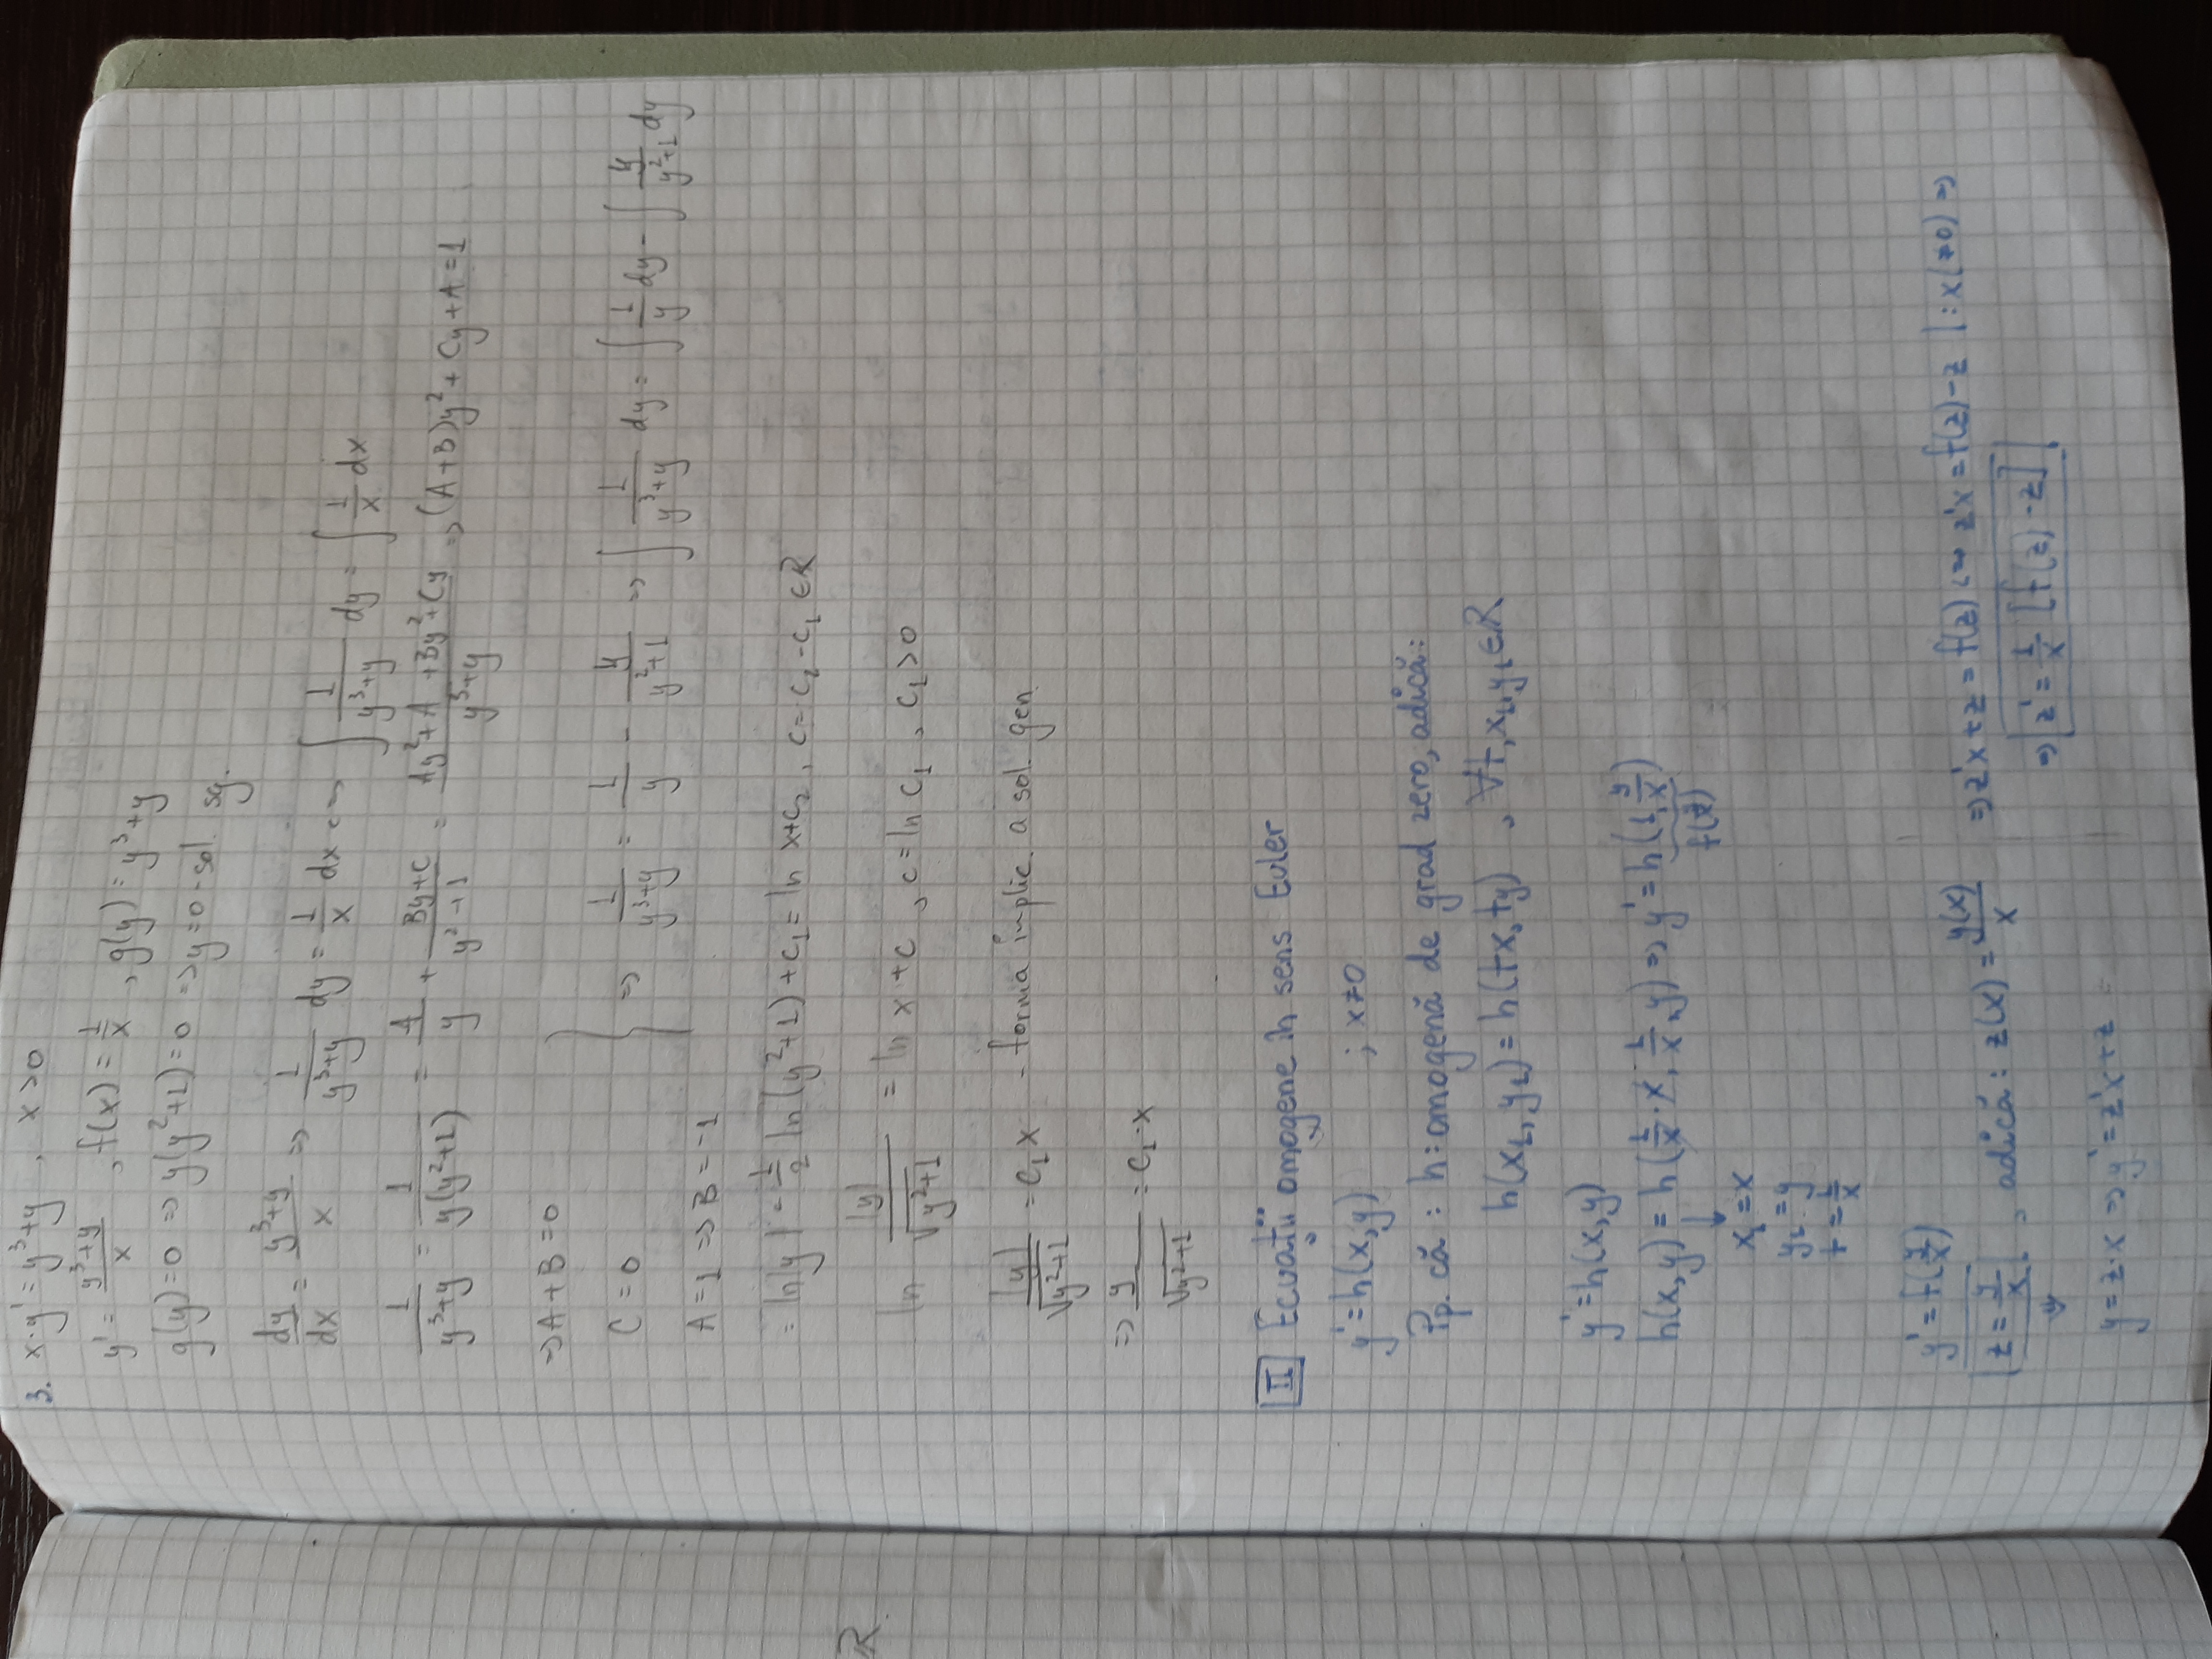 3. x·y' = y³+y , x>0
y' = (y³+y)/x , f(x) = 1/x , g(y) = y³+y
g(y)=0 => y(y²+1)=0 => y=0 - sol. sg.
dy/dx = (y³+y)/x => 1/(y³+y) dy = 1/x dx <=> ∫ 1/(y³+y) dy = ∫ 1/x dx
1/(y³+y) = 1/(y(y²+1)) = A/y + (By+C)/(y²+1) = (Ay²+A+By²+Cy)/(y³+y) => (A+B)y² + Cy + A = 1
=> A+B=0
C=0
A=1 => B=-1
=> 1/(y³+y) = 1/y - y/(y²+1) => ∫ 1/(y³+y) dy = ∫ 1/y dy - ∫ y/(y²+1) dy
= ln|y| - 1/2 ln(y²+1) + c₁ = ln x + c₂ , c = c₂ - c₁ ∈ R
ln |y|/√(y²+1) = ln x + c , c = ln c₁ , c₁>0
|y|/√(y²+1) = c₁x - forma implic. a sol. gen.
=> y/√(y²+1) = c₁·x
II Ecuații omogene în sens Euler
y' = h(x,y) ; x≠0
Pp. că : h: omogenă de grad zero, adică:
h(x₁, y₁) = h(tx, ty) , ∀t, x₁, y₁ ∈ R
y' = h(x,y)
h(x,y) = h(1/x · x, 1/x · y) => y' = h(1, y/x)
f(y/x)
x₁ = x
y₁ = y
t = 1/x
y' = f(y/x)
z = y/x , adică: z(x) = y(x)/x
y = z·x => y' = z'x + z
=> z'x + z = f(z) <=> z'x = f(z) - z |:x(≠0) =>
=> z' = 1/x [f(z) - z]
R.